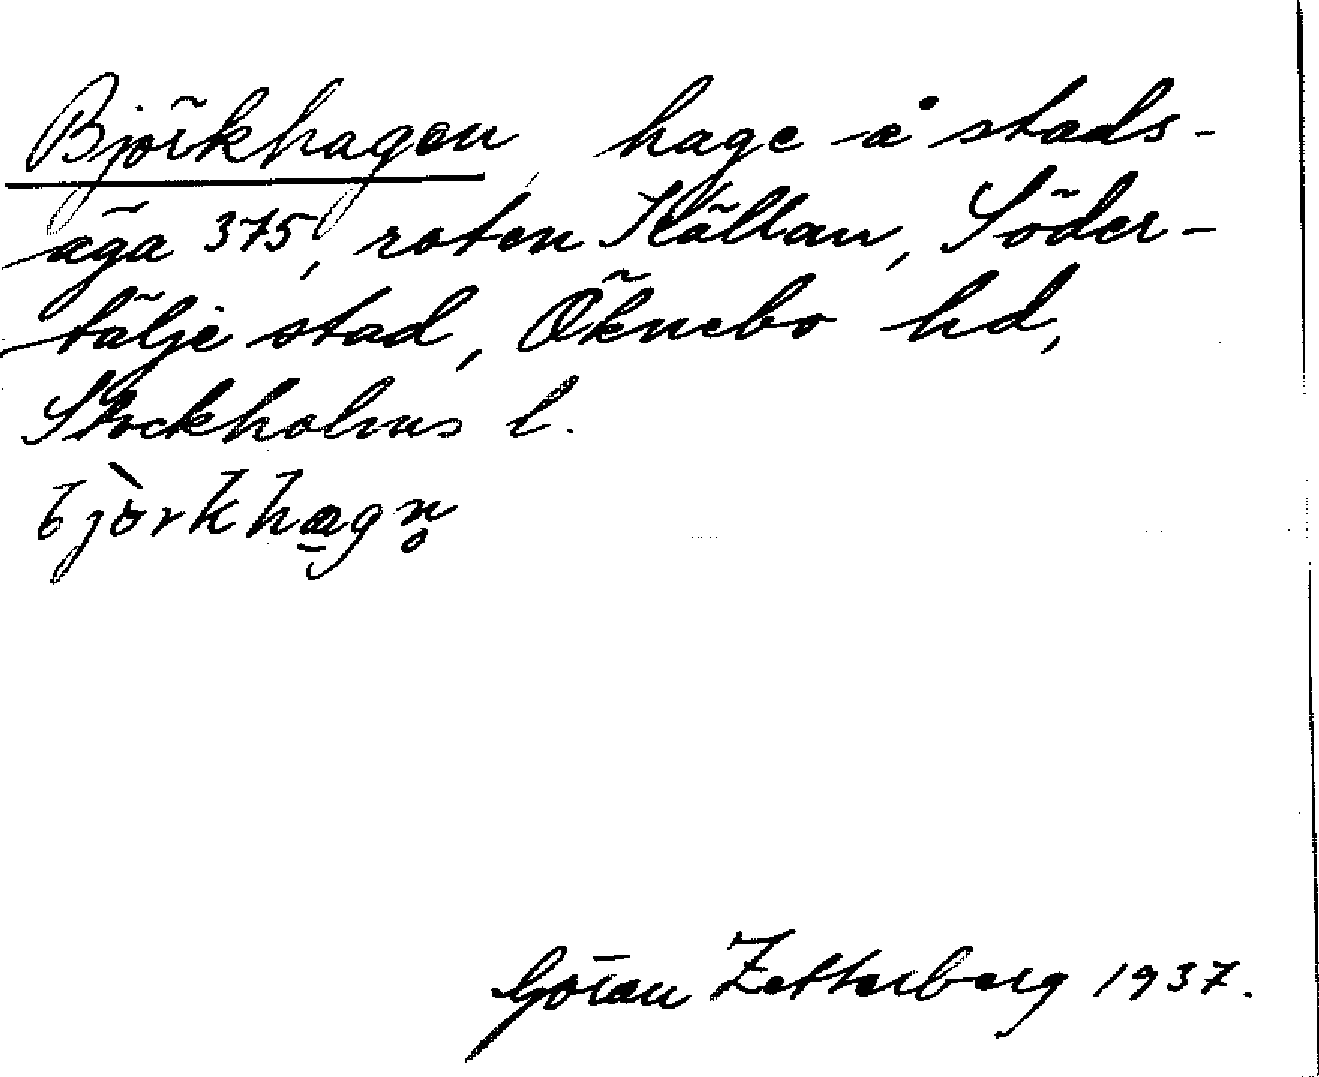 Björkhagen, hage å stads-
äga 375, roten Källan, Söder-
tälje stad, Öknebo hd,
Stockholms l.
bjòrkha̱gn̥
Göran Zetterberg 1937.